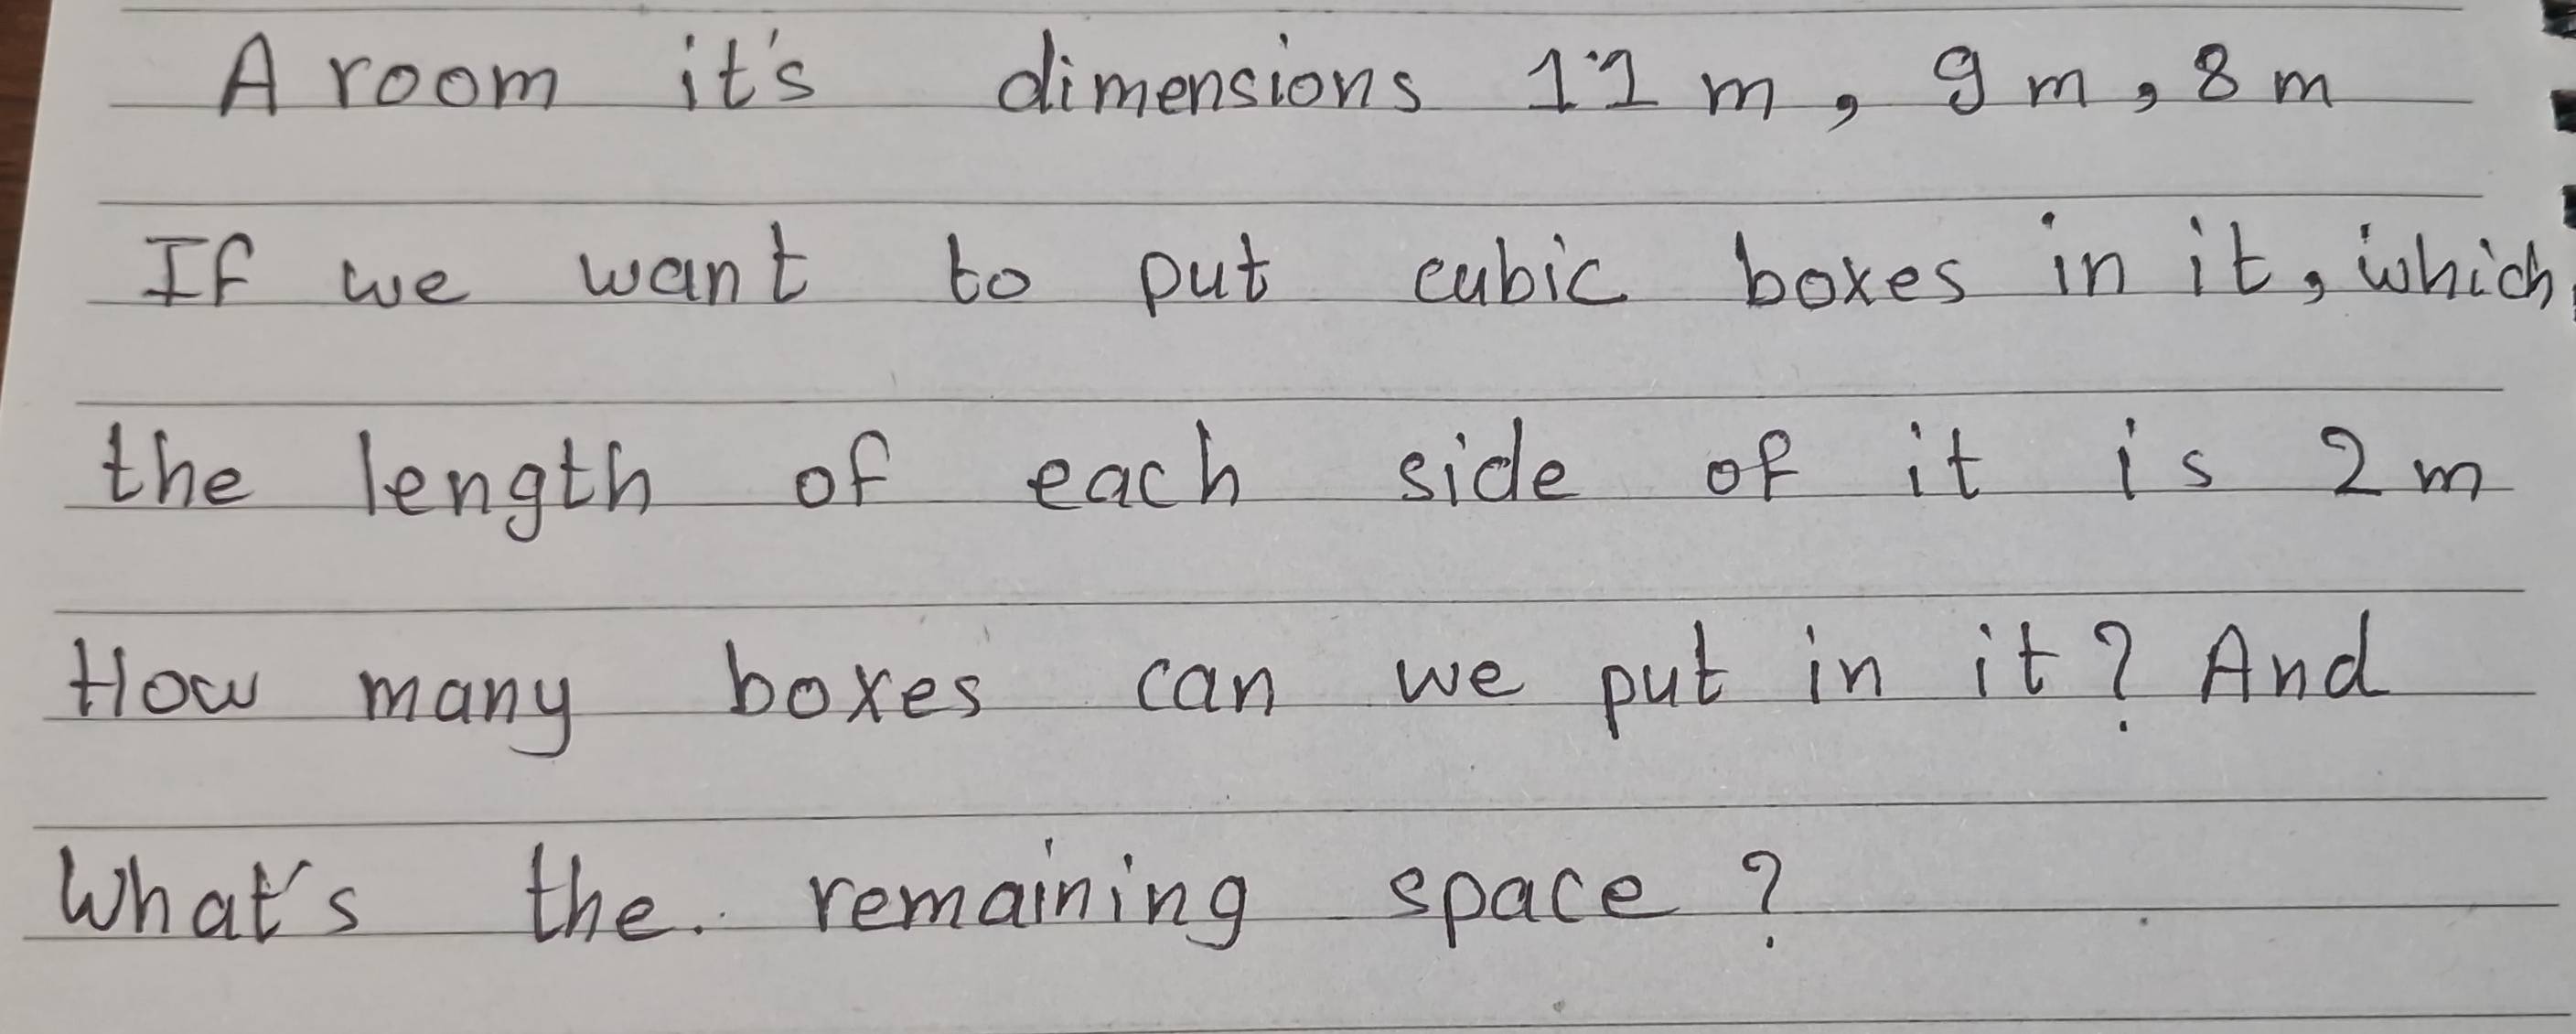 A room it's dimensions 11 m, 9 m, 8 m
If we want to put cubic boxes in it, which
the length of each side of it is 2 m
How many boxes can we put in it? And
What's the remaining space?